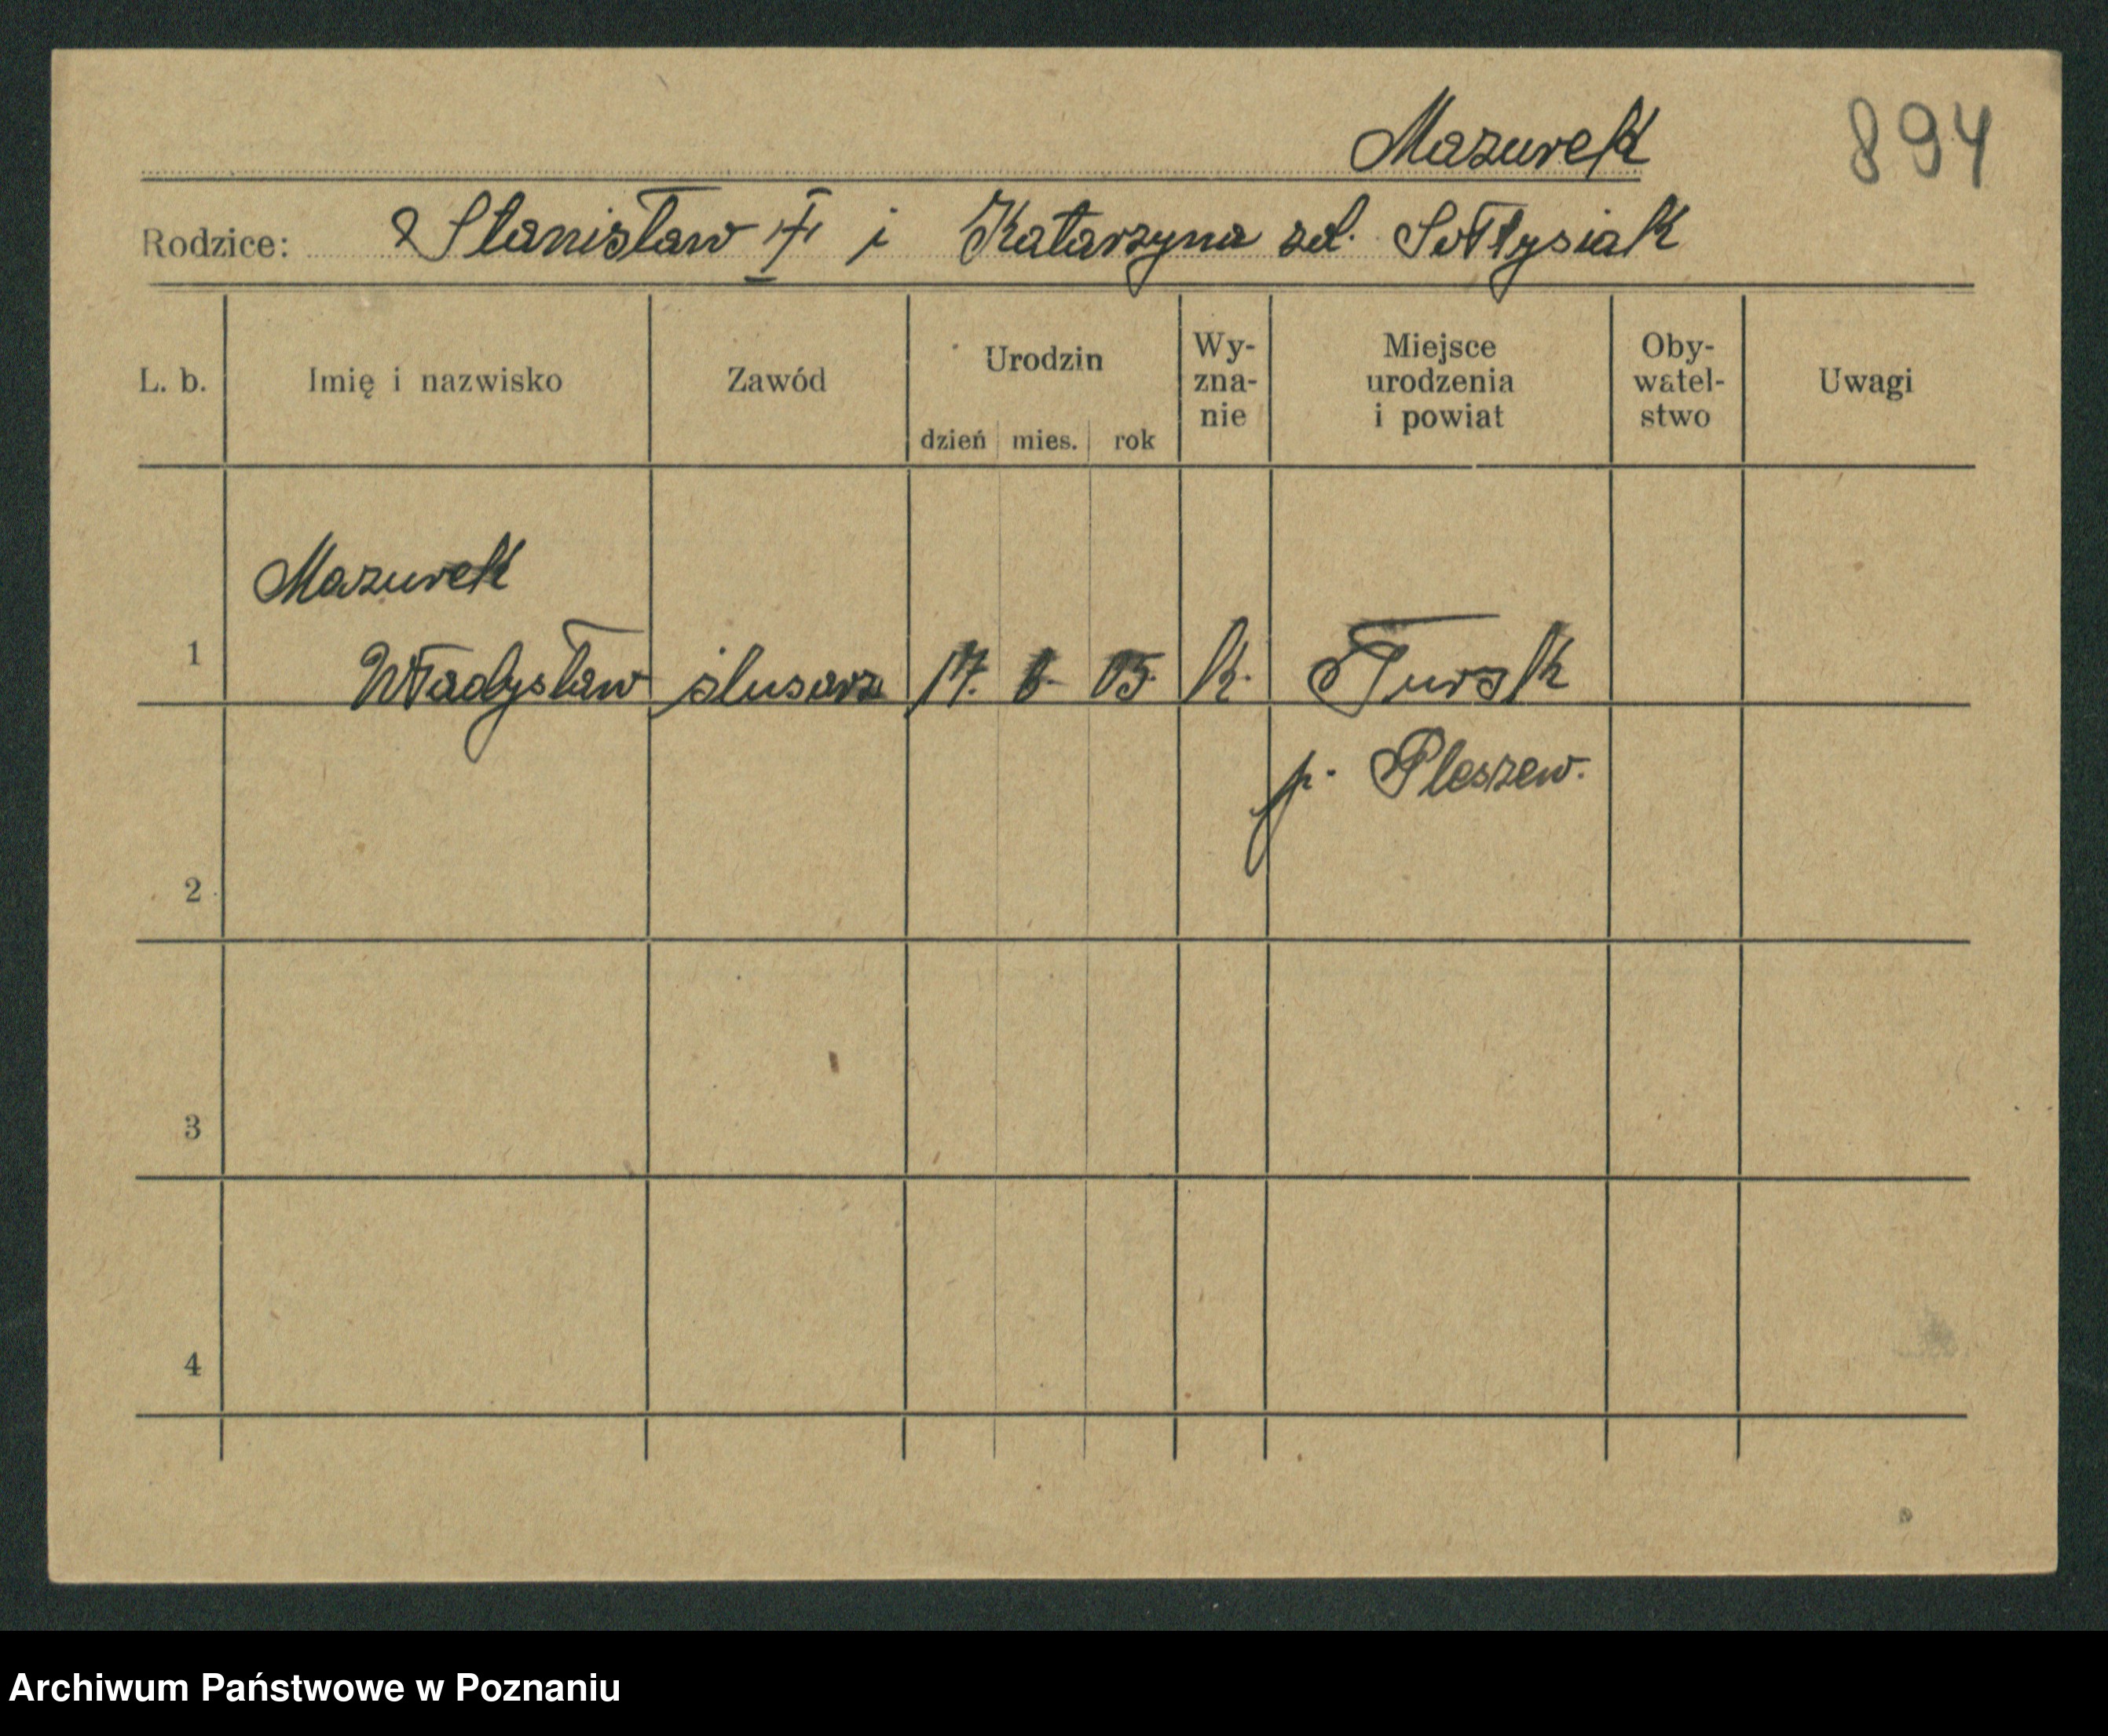 Mazurek 894
Rodzice: Stanisław i Katarzyna zd. Sołtysiak
L. b. Imię i nazwisko Zawód Urodzin dzień mies. rok Wy-zna-nie Miejsce urodzenia i powiat Oby-watel-stwo Uwagi
Mazurek
1 Władysław ślusarz 17. 6. 05. k. Tursk
p. Pleszew.
2
3
4
Archiwum Państwowe w Poznaniu